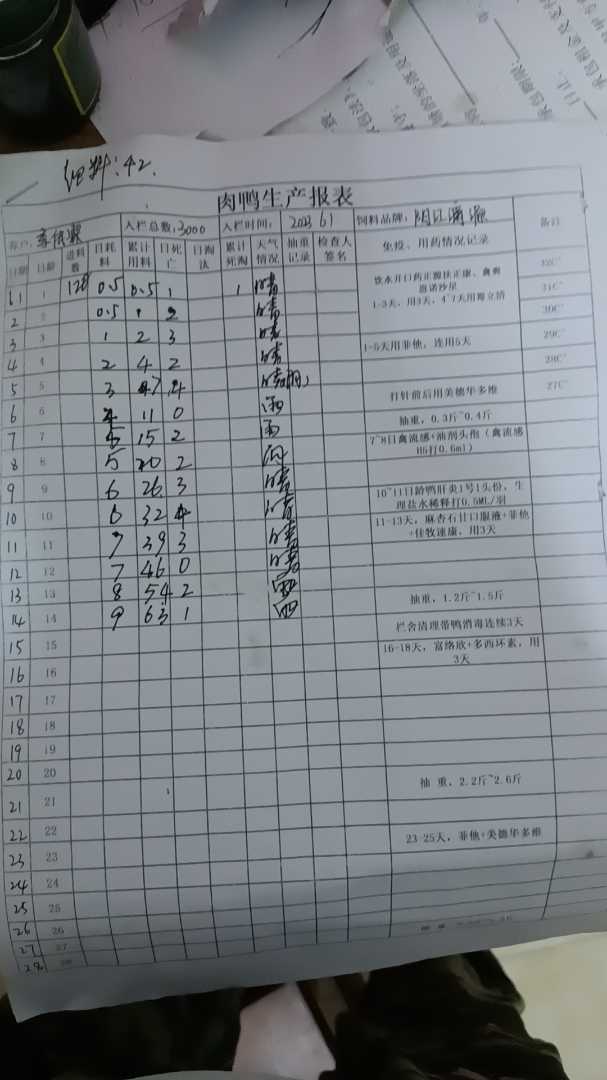 细料：42.
肉鸭生产报表
客户: 入栏总数: 3000 入栏时间: 2023 6 1 饲料品牌: 阳江 备注
日期 日龄 进料数 日耗料 累计用料 日死亡 日淘汰 累计死淘 天气情况 抽重记录 检查人签名 免疫、用药情况记录
6 1 1 128 0.5 0.5 1 1 晴 饮水开口药 扶正康、禽爽 32C°
恩诺沙星 31C°
2 2 0.5 1 2 晴 1-3天，用3天，4~7天用 30C°
3 3 1 2 3 晴 29C°
4 4 2 4 2 晴 1-5天用菲他，连用5天 28C°
5 5 3 7 4 晴 27C°
6 6 4 11 0 雨 打针前后用美德华多维
7 7 15 2 雨 抽重，0.3斤~0.4斤
8 8 5 20 2 7~8日禽流感+油剂头孢（禽流感
H5打0.6ml）
9 9 6 26 3 晴
10 10 6 32 4 晴 10~11日龄鸭肝炎1号1头份，生
理盐水稀释打0.5ML/羽
11 11 7 39 3 晴 11-13天，麻杏石甘口服液+菲他
+佳牧速康，用3天
12 12 7 46 0 晴
13 13 8 54 2
14 14 9 63 1 抽重，1.2斤~1.5斤
15 15 栏舍清理带鸭消毒连续3天
16 16 16-18天，富络欣+多西环素，用
3天
17 17
18 18
19 19
20 20
21 21 抽 重，2.2斤~2.6斤
22 22
23 23 23-25天，菲他+美德华多维
24 24
25 25
26 26
27 27
28 28